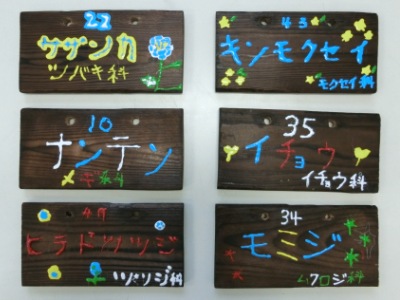 22
サザンカ
ツバキ科
43
キンモクセイ
モクセイ科
10
ナンテン
メギ科
35
イチョウ
イチョウ科
ヒラドツツジ
ツツジ科
34
モミジ
ムクロジ科